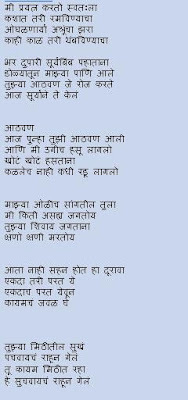 मी प्रयत्न करतो स्वतःला
कशात तरी रमविण्याचा
ओघळणार्या अश्रुंचा झरा
काही काळ तरी थंबविण्याचा
भर दुपारी सूर्यबिंब पहाताना
डोळ्यातून माझ्या पाणि आले
तुझ्या आठवण जे रोज करते
आज सूर्याने ते केले
आठवण
आज पुन्हा तुझी आठवण आली
आणि मी उगीच हसू लागलो
खोटं खोटं हसताना
कळलेच नाही कधी रडू लागलो
माझ्या ओळीच सांगतील तुला
मी किती असह्य जगतोय
तुझ्या शिवाय जगताना
क्षणो क्षणी मरतोय
आता नाही सहन होत हा दूरावा
एकदा तरी परत ये
एकदाच परत येवून
कायमचं जवळ घे
तुझ्या मिठीतील सुखं
पचवायचं राहून गेलं
तू कायम मिठीत रहा
हे सुचवायचं राहून गेलं